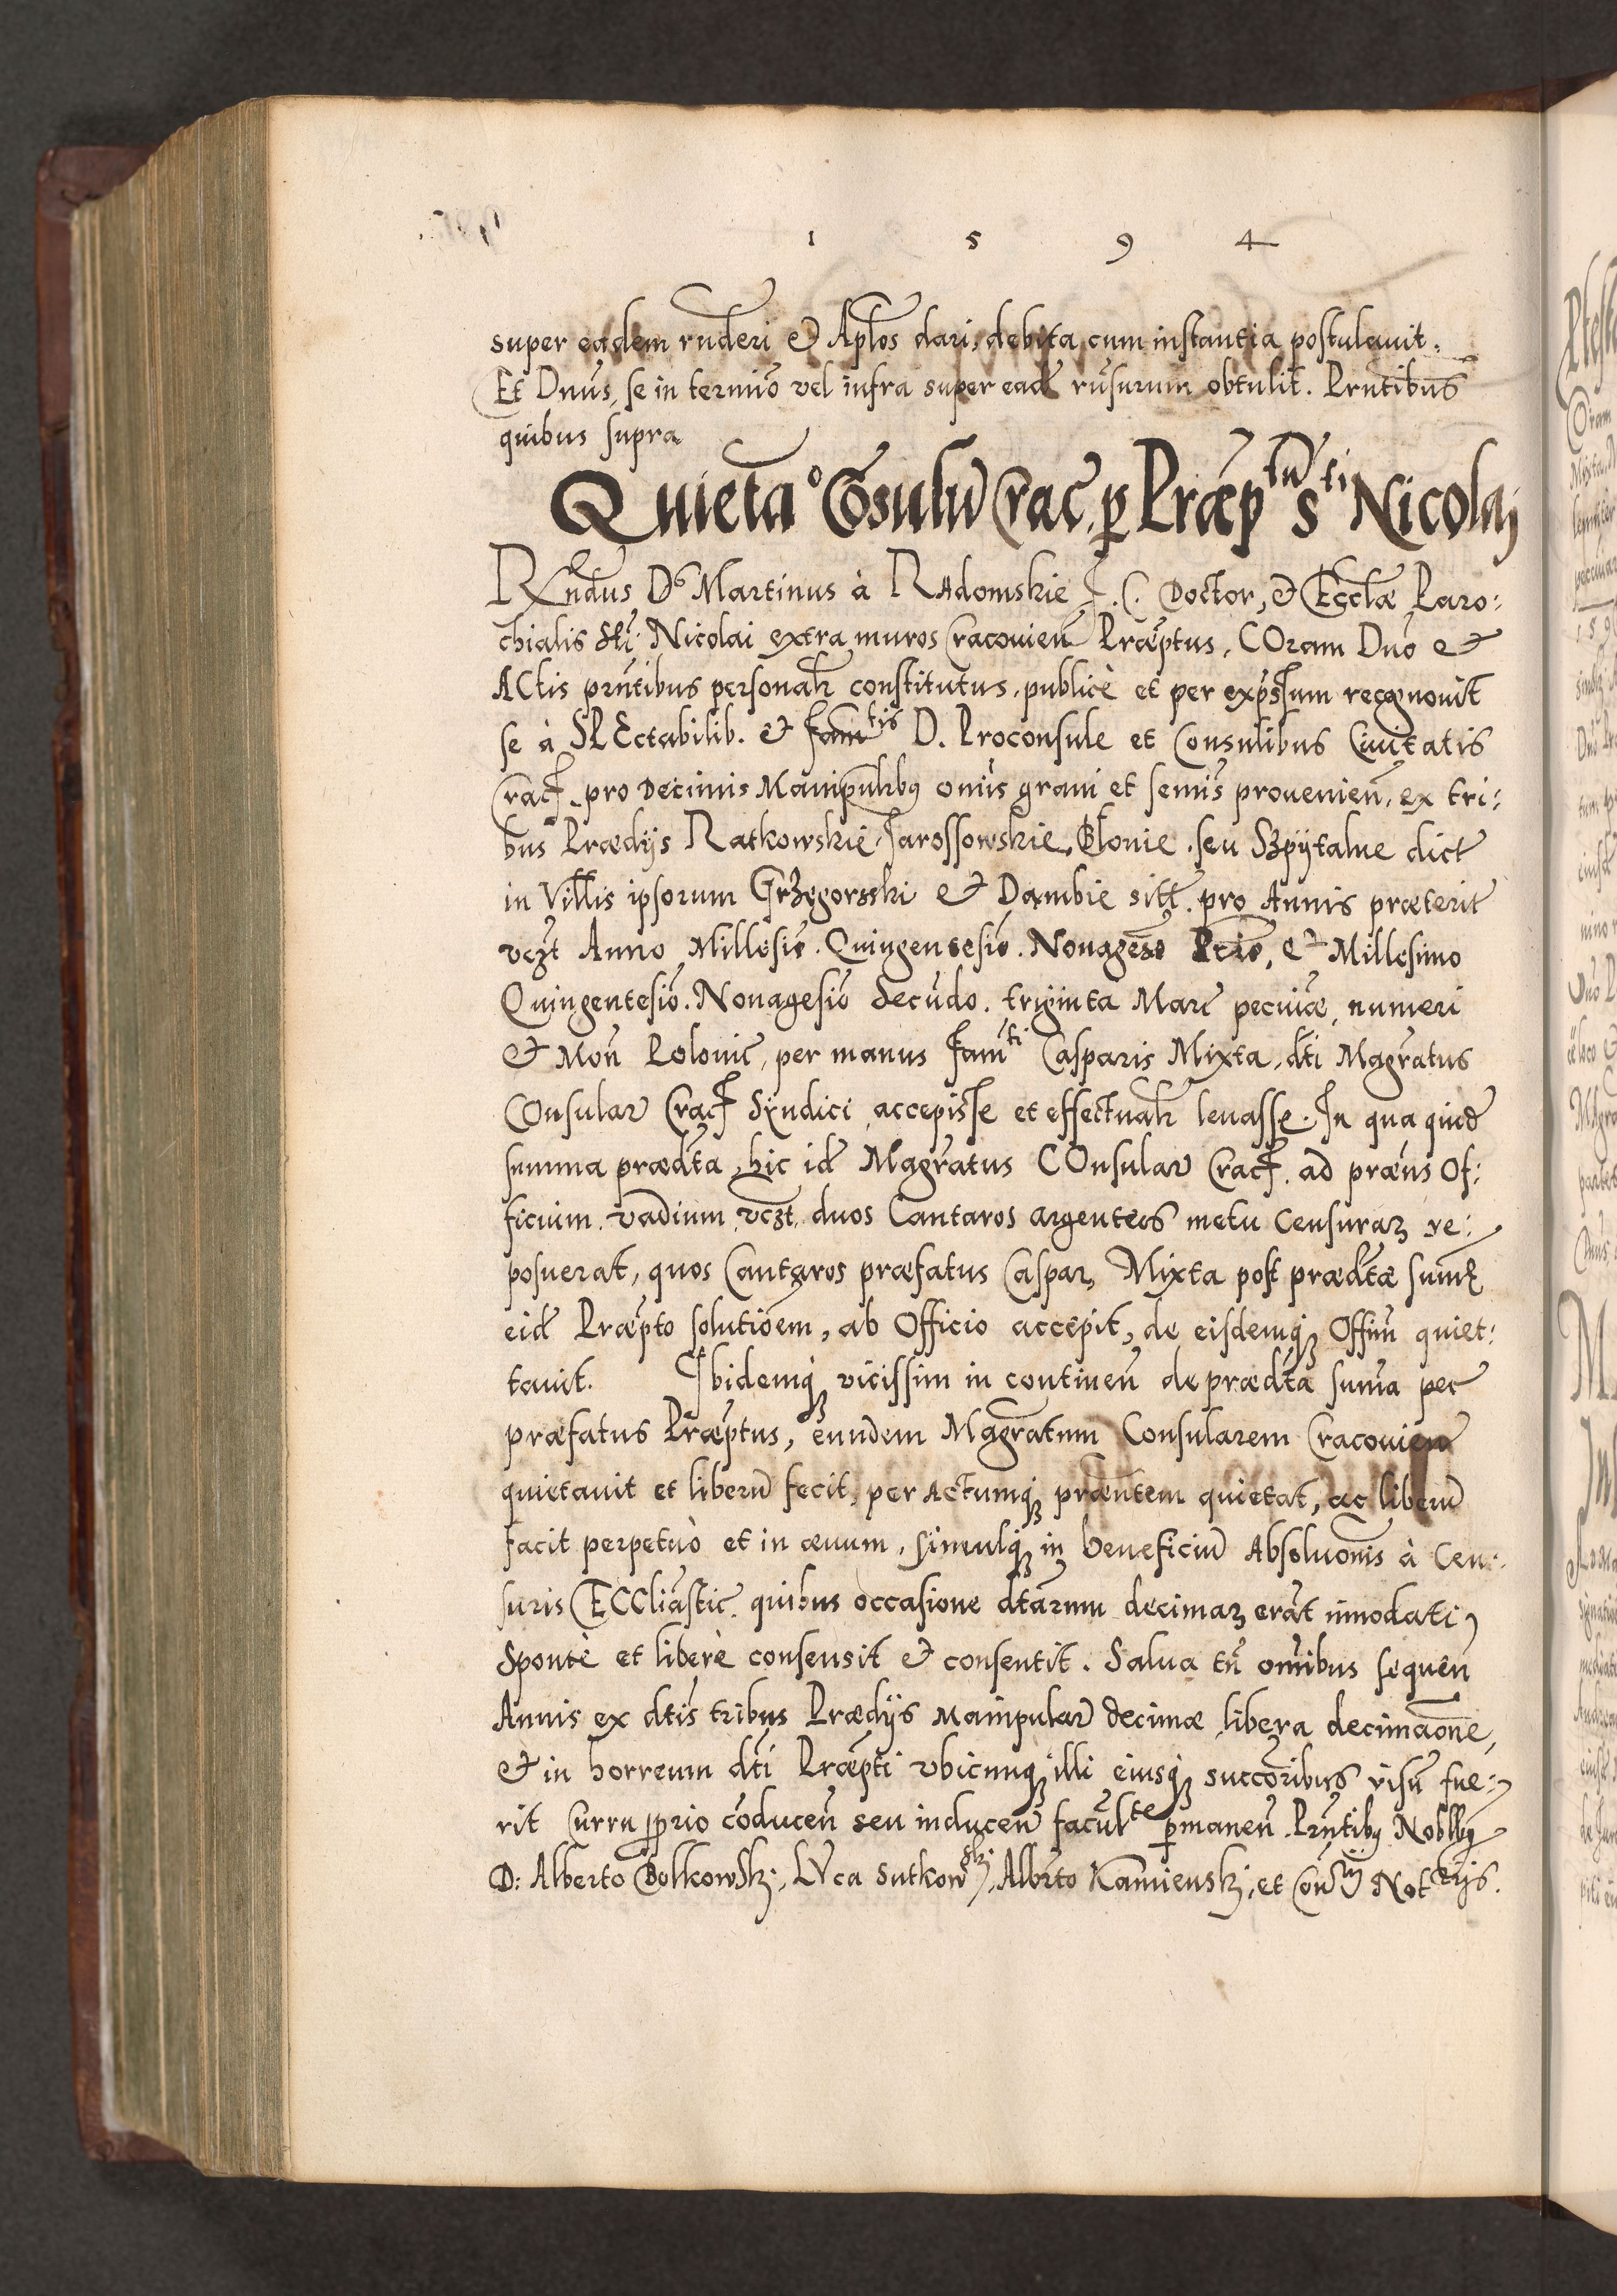 1 5 9 4
super eadem rñderi et Aplos dari, debita cum instantia postulauit.
Et Dnus, se in termio vel infra super eadē rñsurum obtulit. Prntibus
quibus supra
Quieta° Cōsulū Crac. p Præp^tū S^ti Nicolaj
Rxndus D^s Martinus à RAdomskie J. C. Doctor, et Ecclæ Paro:
chialis Sti Nicolai extra muros Cracouien Præptus, COram Dno et
ACtis prntibus personalr constitutus, publicè et per expssum recognouit
se à SPEctabilib. et fam^tis D. Proconsule et Consulibus Ciuitatis
Crac. pro Decimis Manipulibus omis grani et semis prouenien. ex tri:
bus Prædijs Ratkowskie Jarossowskie, Blonie seu Szpijtalne dict
in Villis ipsorum Grzegorsski et Dambie sitt. pro Annis præterit
vczt Anno Millesio. Quingentesio. Nonageso Prio, et Millesimo
Quingentesiō. Nonagesiō Secūdo. triginta Marc pecuiæ, numeri
et Mon Polonic, per manus fam^ti Casparis Mixta, dti Magratus
COnsular Crac Syndici, accepisse et effectualr leuasse. In qua quidē
summa prædta, hic idē Magratus COnsular Crac. ad præns Of:
ficium vadium vczt duos Cantaros argenteos metu Censurarz re:
posuerat, quos Cantaros præfatus Caspar Mixta post prædtæ sum̄æ
eidē Præpto solutioem, ab Officio accepit, de eisdemqz Offim quiet:
tauit. Ibidemqz vicissim in continen̄ de prædta sum̄a pec
præfatus Præptus, eundem Magratum Consularem Cracouien
quietauit et liberū fecit, per Actumqz præntem quietat, ac liberū
facit perpetuò et in æuum, simulqz in beneficiū Absoluonis à Cen:
suris ECCliastic. quibus occasione dtarum decimarz erāt innodati,
Spontè et liberè consensit et consentit. Salua tn̄ omibus sequen̄
Annis ex dtis tribus Prædijs Manipular decimæ libera decimaone,
et in horreum dti Præpti vbicunqz illi eiusqz succoribus visū fue:
rit Curru pprio cōducen̄ seu inducen̄ facul^te pmanen̄. Prntibus Noblbus
D: Alberto Bolkowskj, LVca Sutkow^skj, Albrto Kamienskj, et Cōn^ij Not^rijs.